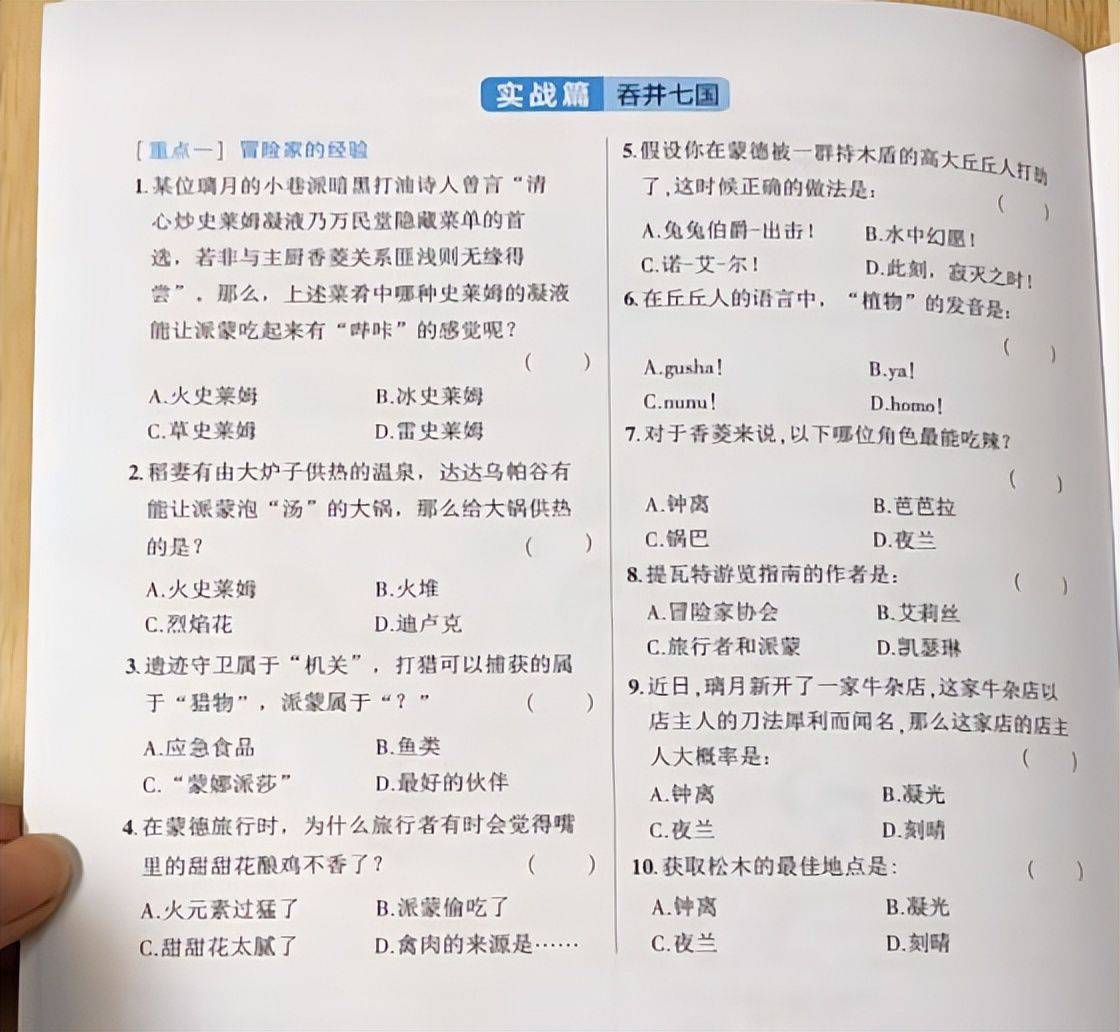 实战篇 吞井七国
[重点一] 冒险家的经验
1.某位璃月的小巷派暗黑打油诗人曾言“清
心炒史莱姆凝液乃万民堂隐藏菜单的首
选，若非与主厨香菱关系匪浅则无缘得
尝”。那么，上述菜肴中哪种史莱姆的凝液
能让派蒙吃起来有“哔咔”的感觉呢？
( )
A.火史莱姆 B.冰史莱姆
C.草史莱姆 D.雷史莱姆
2.稻妻有由大炉子供热的温泉，达达乌帕谷有
能让派蒙泡“汤”的大锅，那么给大锅供热
的是？ ( )
A.火史莱姆 B.火堆
C.烈焰花 D.迪卢克
3.遗迹守卫属于“机关”，打猎可以捕获的属
于“猎物”，派蒙属于“？” ( )
A.应急食品 B.鱼类
C.“蒙娜派莎” D.最好的伙伴
4.在蒙德旅行时，为什么旅行者有时会觉得嘴
里的甜甜花酿鸡不香了？ ( )
A.火元素过猛了 B.派蒙偷吃了
C.甜甜花太腻了 D.禽肉的来源是……
5.假设你在蒙德被一群持木盾的高大丘丘人打劫
了,这时候正确的做法是:
( )
A.兔兔伯爵-出击! B.水中幻愿!
C.诺-艾-尔! D.此刻，寂灭之时!
6.在丘丘人的语言中，“植物”的发音是:
( )
A.gusha! B.ya!
C.nunu! D.homo!
7.对于香菱来说,以下哪位角色最能吃辣?
( )
A.钟离 B.芭芭拉
C.锅巴 D.夜兰
8.提瓦特游览指南的作者是: ( )
A.冒险家协会 B.艾莉丝
C.旅行者和派蒙 D.凯瑟琳
9.近日,璃月新开了一家牛杂店,这家牛杂店以
店主人的刀法犀利而闻名,那么这家店的店主
人大概率是: ( )
A.钟离 B.凝光
C.夜兰 D.刻晴
10.获取松木的最佳地点是: ( )
A.钟离 B.凝光
C.夜兰 D.刻晴